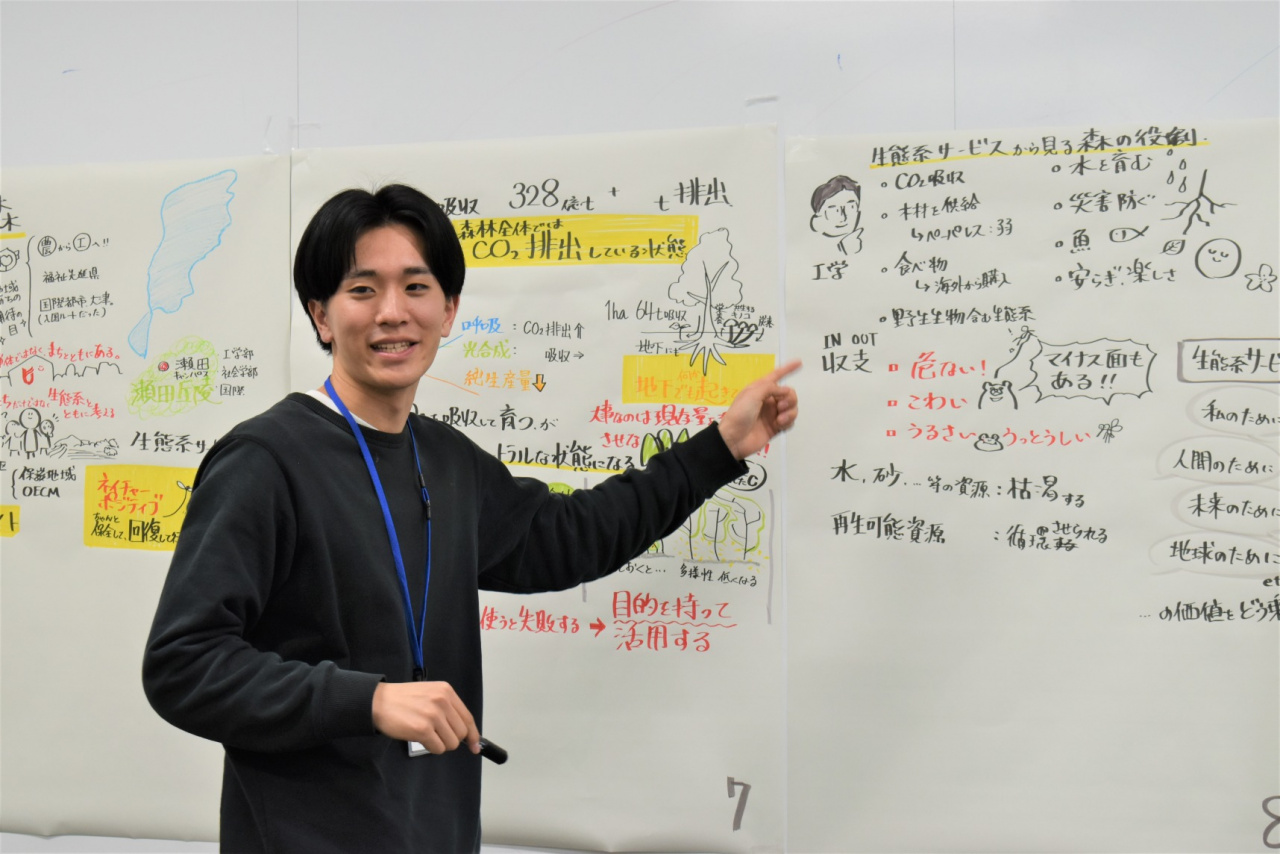 農から工へ!!
福祉先進県
国際都市 大津。
(人口ルートだった)
まちとともにある。
瀬田
キャンパス
瀬田丘陵
工学部
社会学部
国際
生態系と
ともに考える
生態系サ
保護地域
OECM
ネイチャー
ポジティブ
ちゃんと
保全して、回復して
吸収 328億t + t 排出
森林全体では
CO₂ 排出している状態
1ha 64t吸収
地下にも
呼吸 : CO₂排出
光合成 : 吸収⇒
純生産量
を吸収して育つ、が
大事なのは現存量を
させな
トラルな状態になる
ておくと… 多様性 低くなる
使うと失敗する → 目的を持って
活用する
7
生態系サービスから見る森の役割.
工学
・CO₂吸収
・木材を供給
↳ペーパレス:弱
・食べ物
↳海外から購入
・野生生物含む生態系
・水を育む
・災害防ぐ
・魚
・安らぎ、楽しさ
IN OUT
収支
危ない!
こわい
うるさい うっとうしい
マイナス面も
ある!!
水, 砂, … 等の資源 : 枯渇する
再生可能資源 : 循環させられる
生態系サービ
私のため
人間のために
未来のために
地球のために
et
… の価値をどう
8